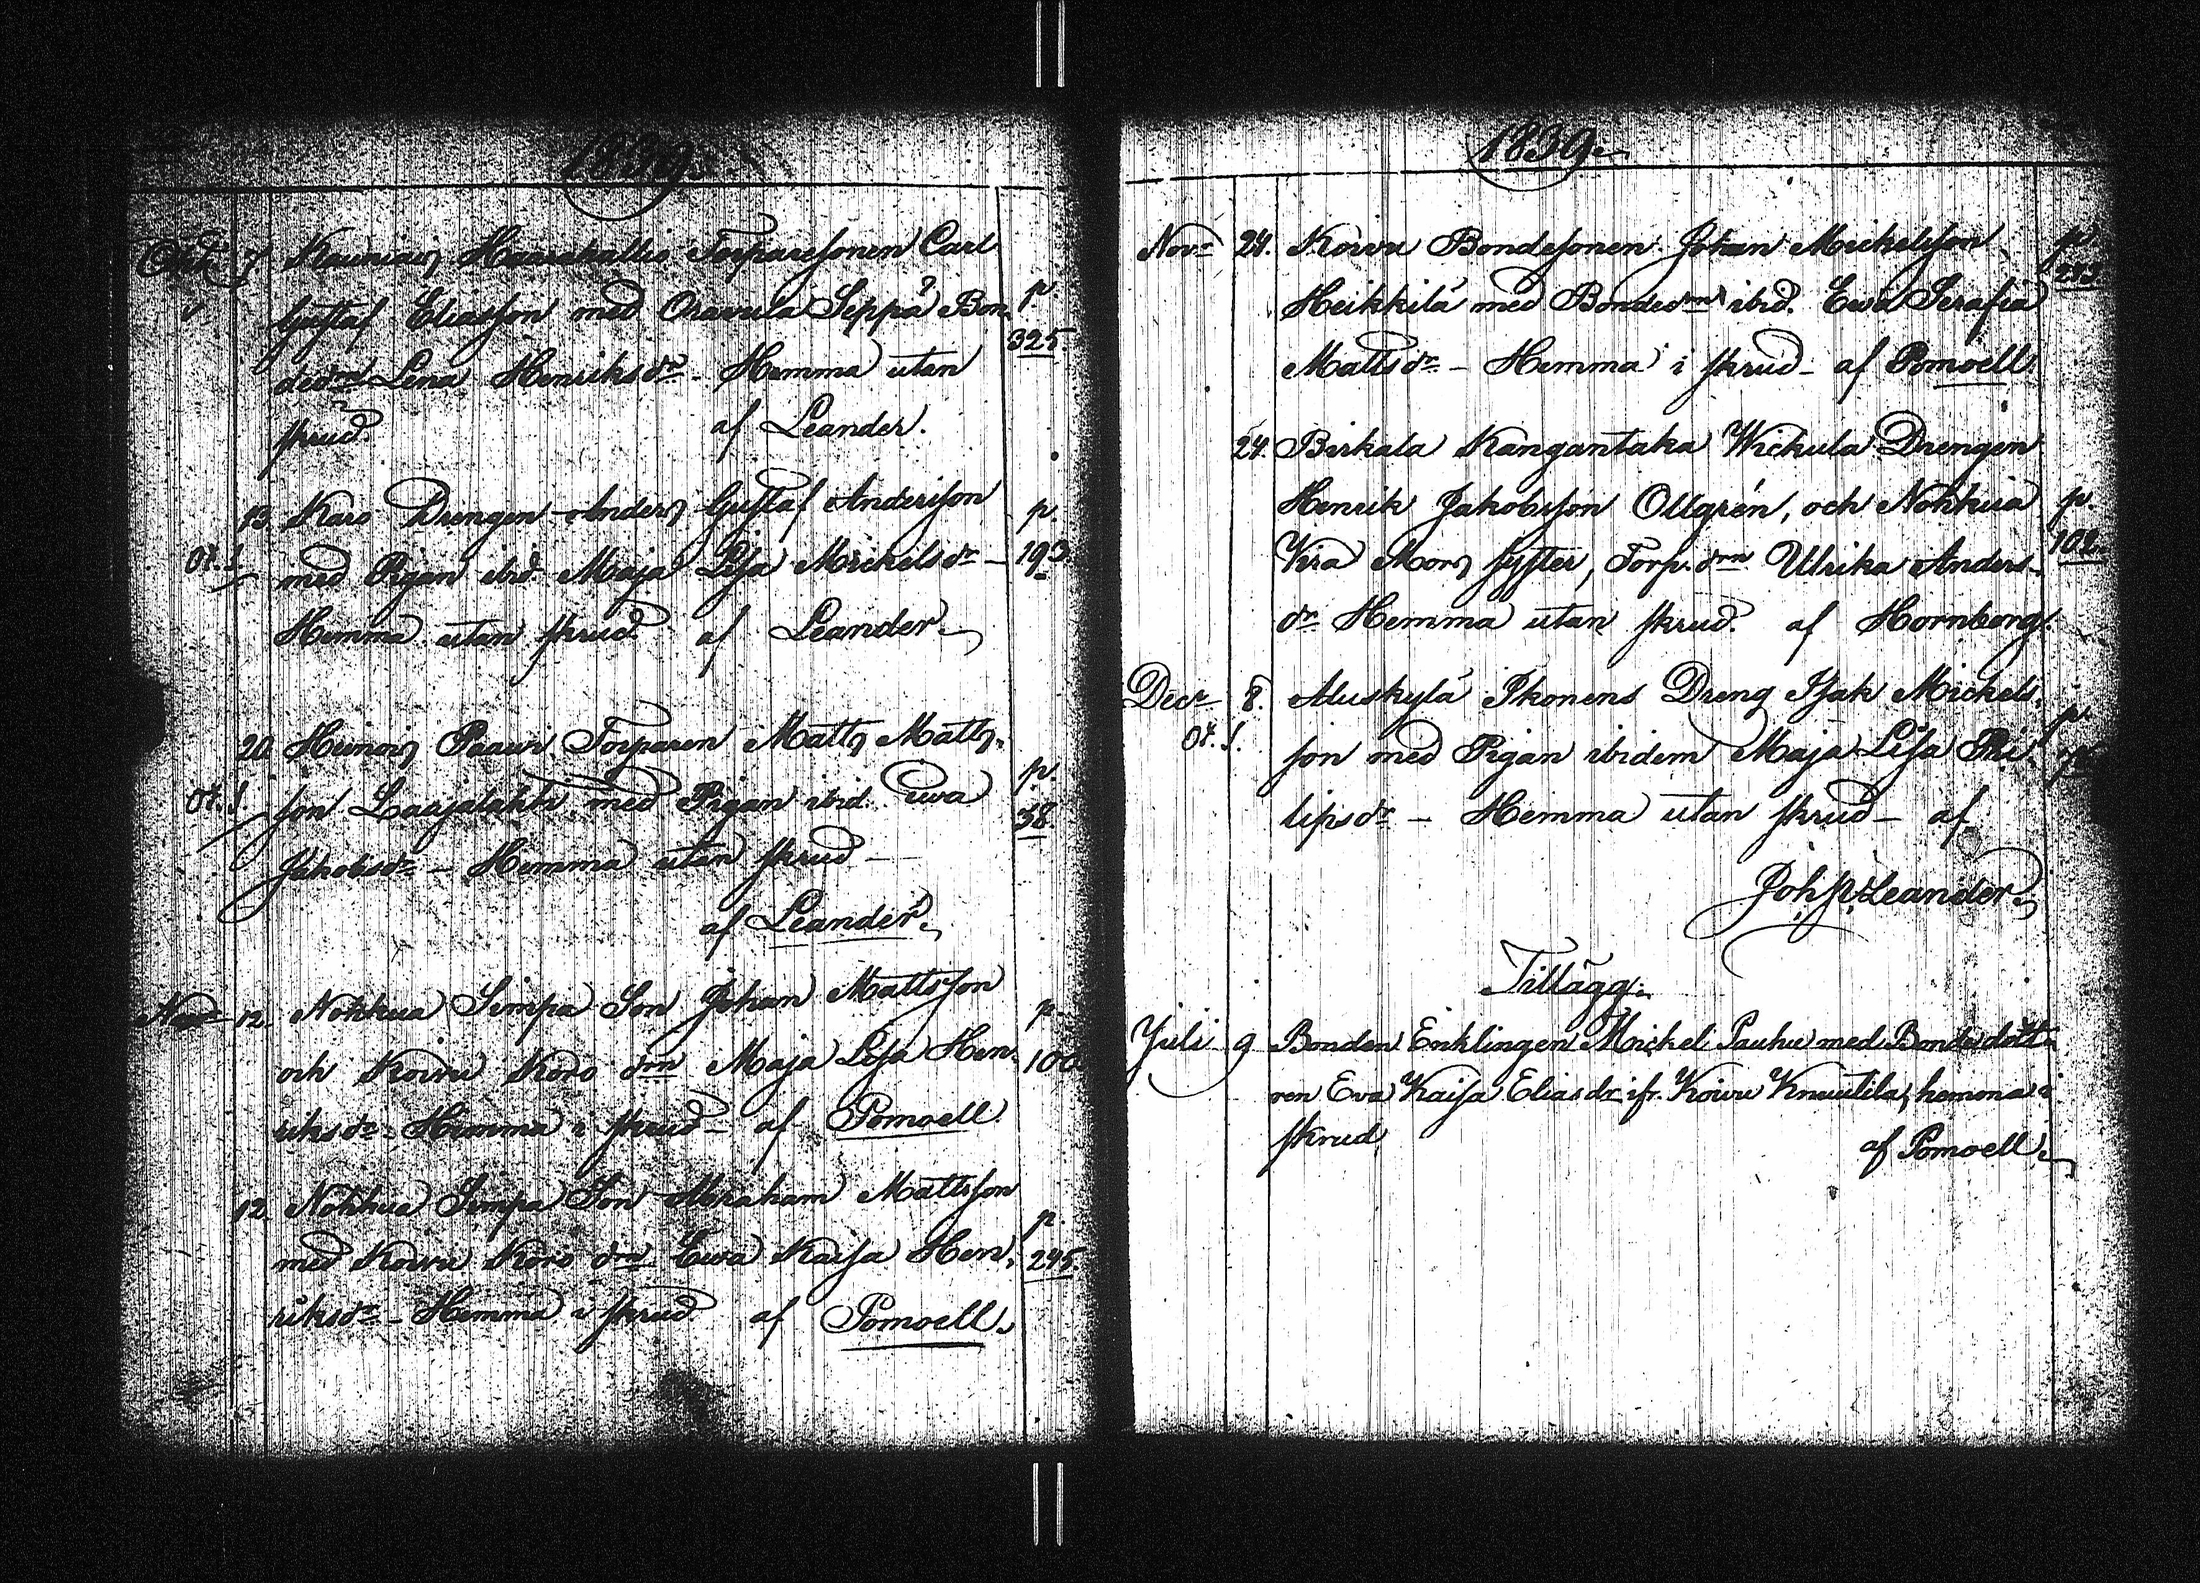 1839.
Octr 7 Kauniais Haarakallio Torparesonen Carl
Gustaf Eliasson med Oravula Seppä Bon p. 325.
dedrn Lena Henriksdr - Hemma utan
skrud. af Leander.
13. Karo Drengen Anders Gustaf Andersson p.
Ot. f. med Pigan ibid. Maja Lisa Mickelsdr - 193.
Hemma utan skrud. af Leander.
20. Heinois Paawi Torparen Matts Matts- p.
Ot. f. son Laajalahti med Pigan ibid. Ewa 38.
Jakobsdr - Hemma utan skrud -
af Leander.
Novr 12. Nohkua Simpa Son Johan Mattsson p.
och Koivu Koro drn Maja Lisa Hen- 100
riksdr - Hemma i skrud - af Pomoell.
12. Nohkua Simpa Son Abraham Mattsson p.
med Koivu Koro drn Ewa Kaisa Hen- 245.
riksdr - Hemma i skrud af Pomoell.
1839.
Novr 24. Koivu Bondesonen Johan Mickelsson p.
Heikkilä med Bondedrn ibid. Ewa Serafia
Mattsdr - Hemma i skrud - af Pomoell.
24. Birkala Kangantaka Wickula Drengen
Henrik Jakobsson Ollgrén, och Nohkua p.
Kira Mors syster, Torp. drn Ulrika Anders- 102.
dr Hemma utan skrud. af Hornborg.
Decr 8. Aluskylä Ikonens Dreng Isak Mickels- p.
Ot. f. son med Pigan ibidem Maja Lisa Phi-
lipsdr - Hemma utan skrud - af
Joh. Leander.
Tillägg.
Juli 9 Bonden Enklingen Mickel Pauhu med Bondedott-
ren Eva Kaisa Eliasdr ifr. Koivu Knuutila, hemma i
skrud af Pomoell.